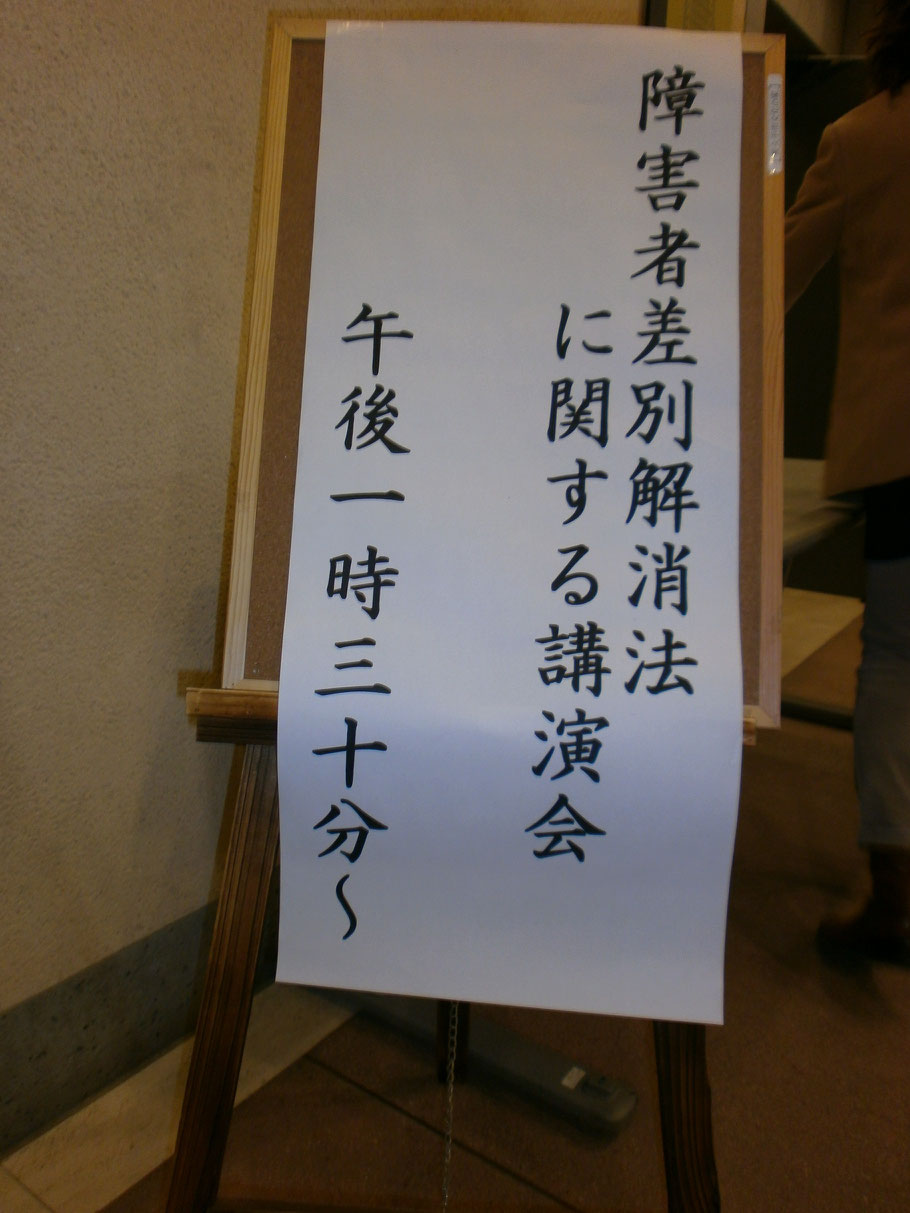 障害者差別解消法
に関する講演会
午後一時三十分～